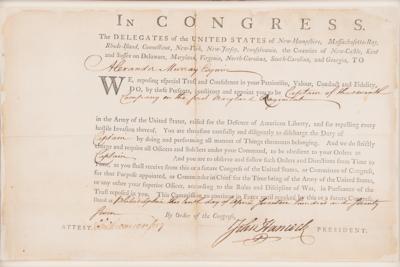 IN CONGRESS.
The DELEGATES of the UNITED STATES of New-Hampshire, Massachusetts-Bay,
Rhode-Island, Connecticut, New-York, New-Jersey, Pennsylvania, the Counties of New-Castle, Kent
and Sussex on Delaware, Maryland, Virginia, North-Carolina, South-Carolina, and Georgia, TO
Alexander Murray Esquire
WE, reposing especial Trust and Confidence in your Patriotism, Valour, Conduct and Fidelity,
DO, by these Presents, constitute and appoint you to be Captain of the
Company in the first Maryland Regiment
in the Army of the United States, raised for the Defence of American Liberty, and for repelling every
hostile Invasion thereof. You are therefore carefully and diligently to discharge the Duty of
Captain by doing and performing all manner of Things thereunto belonging. And we do strictly
charge and require all Officers and Soldiers under your Command, to be obedient to your Orders as
Captain And you are to observe and follow such Orders and Directions from Time to
Time, as you shall receive from this or a future Congress of the United States, or Committee of Congress,
for that Purpose appointed, or Commander in Chief for the Time being of the Army of the United States,
or any other your superior Officer, according to the Rules and Discipline of War, in Pursuance of the
Trust reposed in you. This Commission to continue in Force until revoked by this or a future Congress.
Dated at Philadelphia this tenth day of April Seventeen hundred and Seventy
Seven
By Order of the Congress,
ATTEST. John Hancock PRESIDENT.